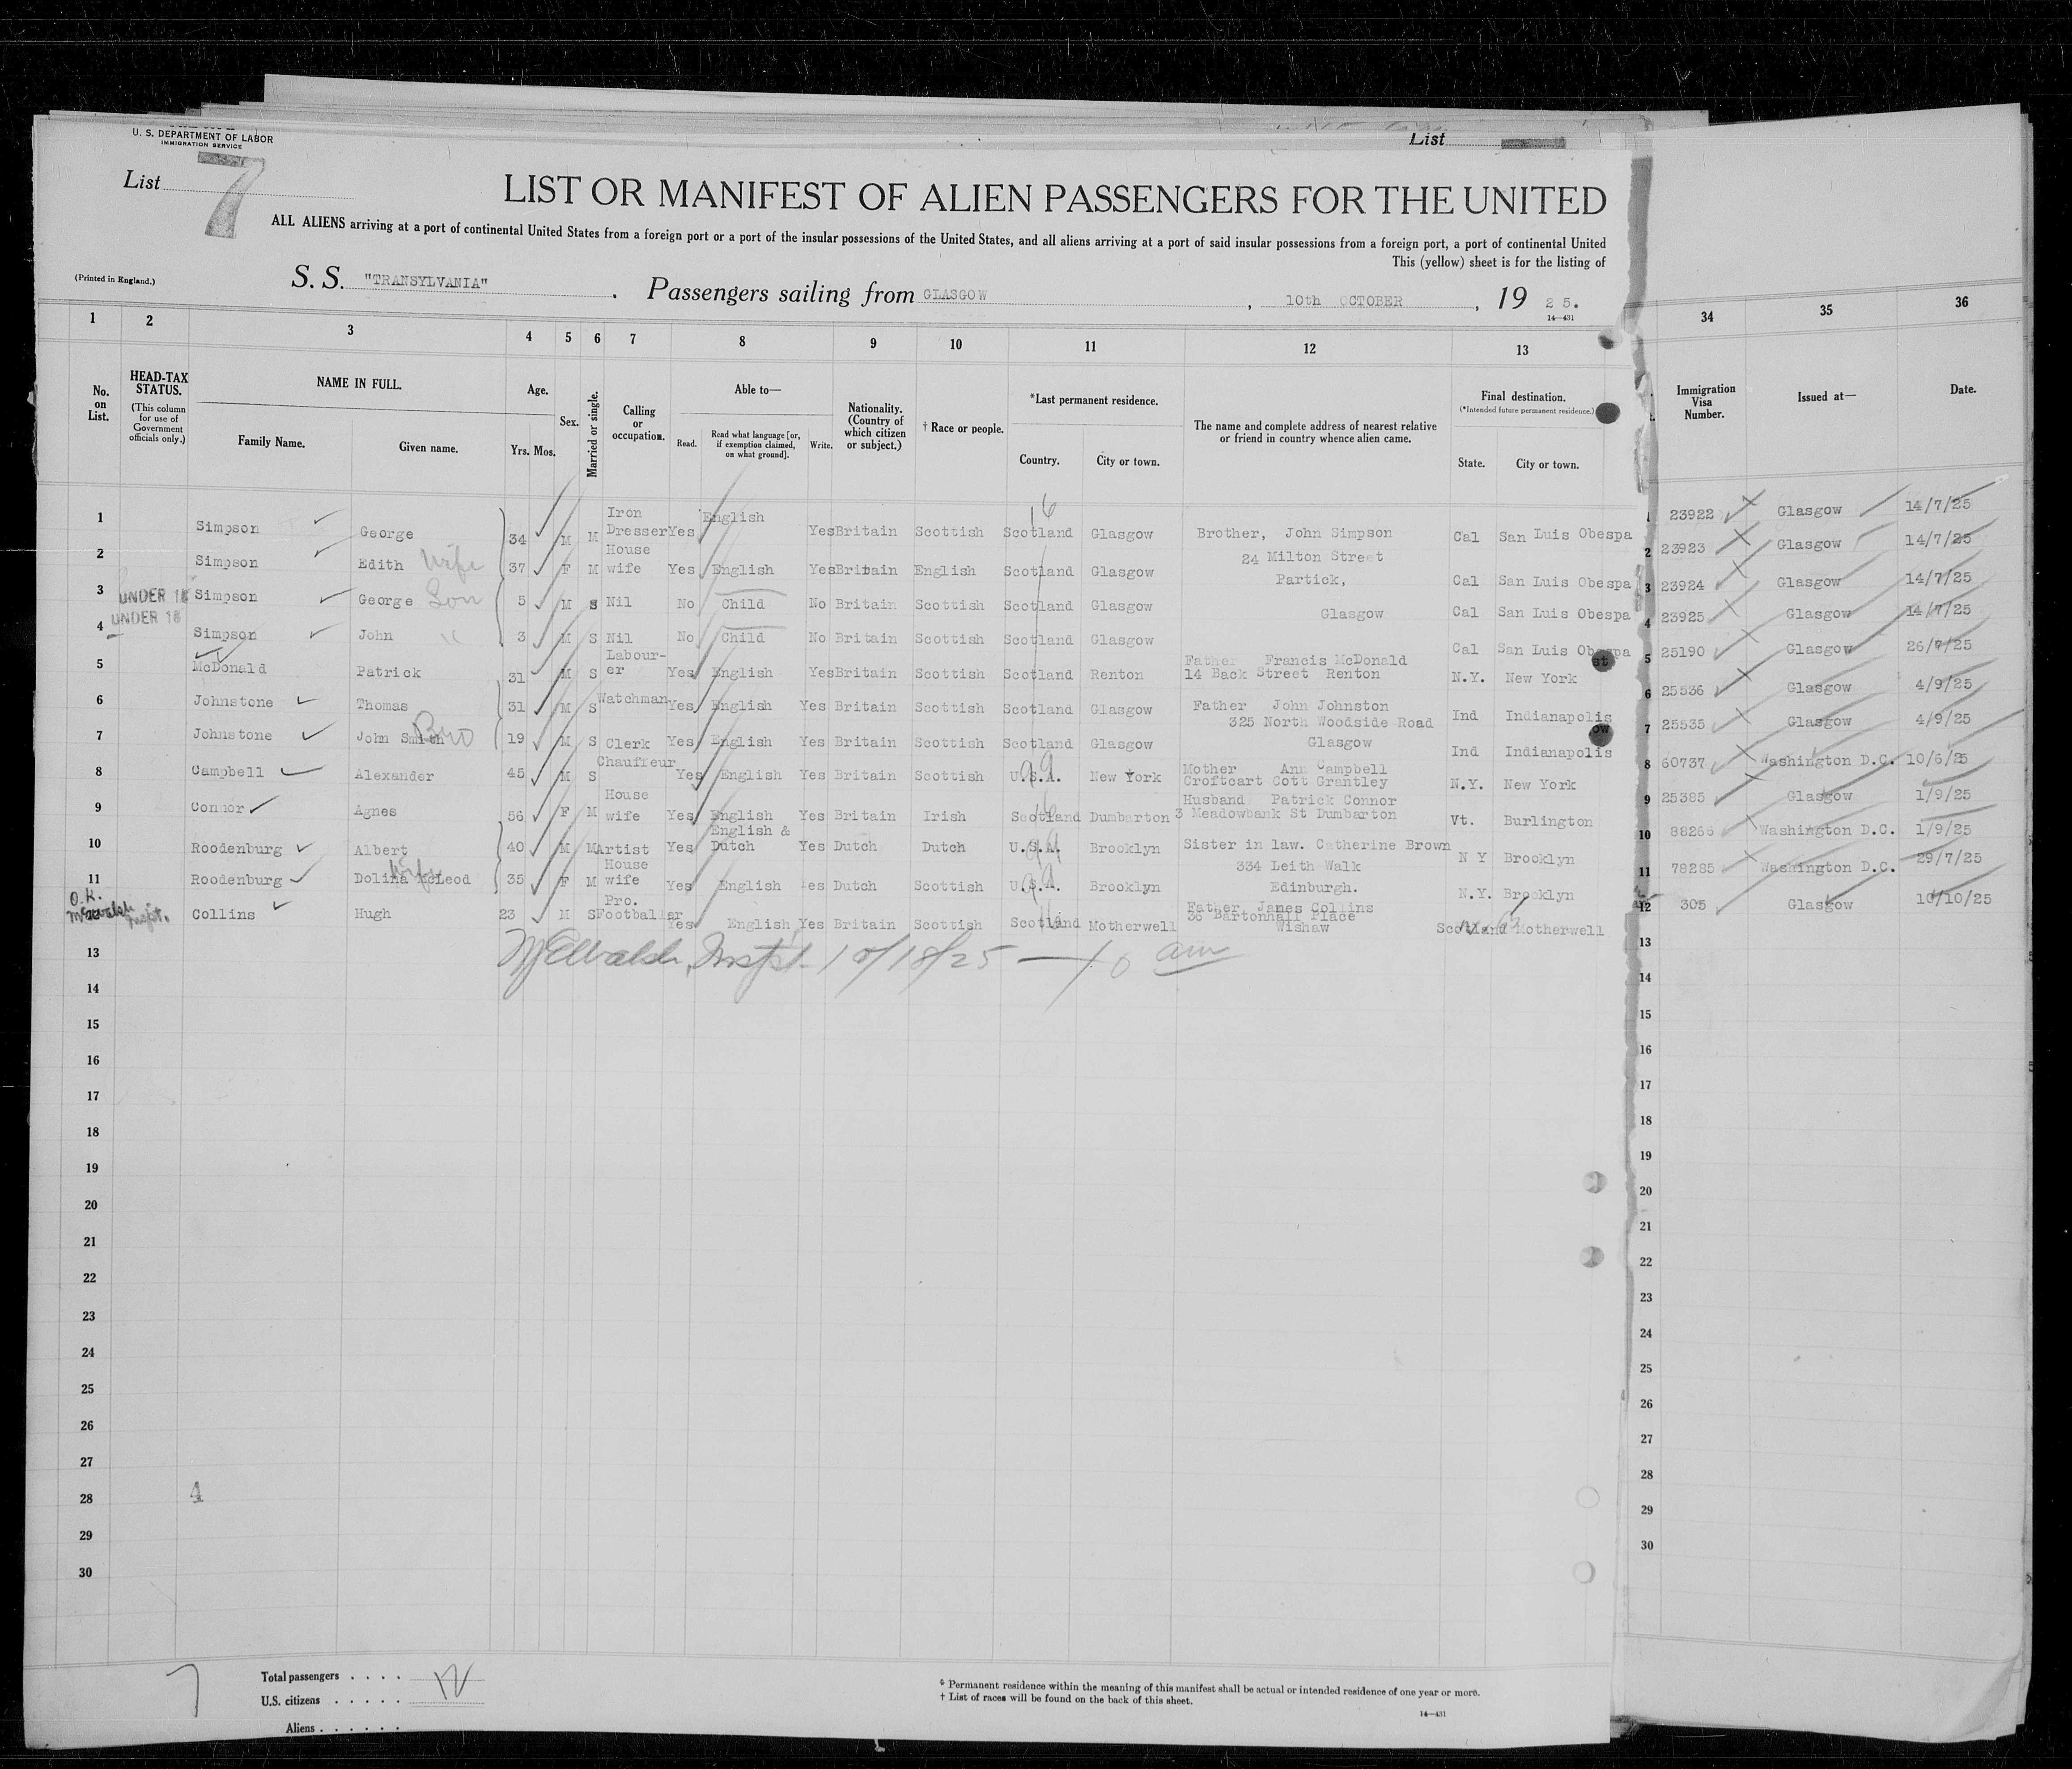 U. S. DEPARTMENT OF LABOR
IMMIGRATION SERVICE
List
List 7
LIST OR MANIFEST OF ALIEN PASSENGERS FOR THE UNITED
ALL ALIENS arriving at a port of continental United States from a foreign port or a port of the insular possessions of the United States, and all aliens arriving at a port of said insular possessions from a foreign port, a port of continental United
This (yellow) sheet is for the listing of
(Printed in England.)
S. S. "TRANSYLVANIA" . Passengers sailing from GLASGOW , 10th OCTOBER , 19 25.
14—431
1 2 3 4 5 6 7 8 9 10 11 12 13 34 35 36
No. on List.
HEAD-TAX STATUS.
(This column for use of Government officials only.)
NAME IN FULL.
Family Name. Given name.
Age.
Yrs. Mos.
Sex.
Married or single.
Calling or occupation.
Able to—
Read. Read what language [or, if exemption claimed, on what ground]. Write.
Nationality. (Country of which citizen or subject.)
† Race or people.
*Last permanent residence.
Country. City or town.
The name and complete address of nearest relative or friend in country whence alien came.
Final destination.
(*Intended future permanent residence.)
State. City or town.
Immigration Visa Number.
Issued at—
Date.
1 Simpson George 34 M M Iron Dresser Yes English Yes Britain Scottish Scotland Glasgow Brother, John Simpson Cal San Luis Obespa 1 23922 Glasgow 14/7/25
2 Simpson Edith Wife 37 F M House wife Yes English Yes Britain English Scotland Glasgow 24 Milton Street Cal San Luis Obespa 2 23923 Glasgow 14/7/25
3 UNDER 16 Simpson George Son 5 M S Nil No Child No Britain Scottish Scotland Glasgow Partick, Cal San Luis Obespa 3 23924 Glasgow 14/7/25
4 UNDER 16 Simpson John " 3 M S Nil No Child No Britain Scottish Scotland Glasgow Glasgow Cal San Luis Obespa 4 23925 Glasgow 14/7/25
5 McDonald Patrick 31 M S Labour-er Yes English Yes Britain Scottish Scotland Renton Father Francis McDonald 14 Back Street Renton N.Y. New York 5 25190 Glasgow 26/7/25
6 Johnstone Thomas 31 M S Watchman Yes English Yes Britain Scottish Scotland Glasgow Father John Johnston 325 North Woodside Road Ind Indianapolis 6 25536 Glasgow 4/9/25
7 Johnstone John Smith Bro 19 M S Clerk Yes English Yes Britain Scottish Scotland Glasgow Glasgow Ind Indianapolis 7 25535 Glasgow 4/9/25
8 Campbell Alexander 45 M S Chauffeur Yes English Yes Britain Scottish U.S.A. New York Mother Ann Campbell Croftcart Cott Grantley N.Y. New York 8 60737 Washington D.C. 10/6/25
9 Connor Agnes 56 F M House wife Yes English Yes Britain Irish Scotland Dumbarton Husband Patrick Connor 3 Meadowbank St Dumbarton Vt. Burlington 9 25385 Glasgow 1/9/25
10 Roodenburg Albert 40 M M Artist Yes English & Dutch Yes Dutch Dutch U.S.A. Brooklyn Sister in law. Catherine Brown N Y Brooklyn 10 88266 Washington D.C. 1/9/25
11 Roodenburg Dolina McLeod Wife 35 F M House wife Yes English Yes Dutch Scottish U.S.A. Brooklyn 334 Leith Walk Edinburgh. N.Y. Brooklyn 11 78285 Washington D.C. 29/7/25
O.K.
Inspt. Collins Hugh 23 M S Pro. Footballer Yes English Yes Britain Scottish Scotland Motherwell Father James Collins 38 Bartonhall Place Wishaw Scotland Motherwell 12 305 Glasgow 10/10/25
Inspt. 10/18/25 — 10 am
13 13
14 14
15 15
16 16
17 17
18 18
19 19
20 20
21 21
22 22
23 23
24 24
25 25
26 26
27 27
28 4 28
29 29
30 30
7
Total passengers . . . . 12
U.S. citizens . . . . .
Aliens . . . . . .
* Permanent residence within the meaning of this manifest shall be actual or intended residence of one year or more.
† List of races will be found on the back of this sheet.
14—431